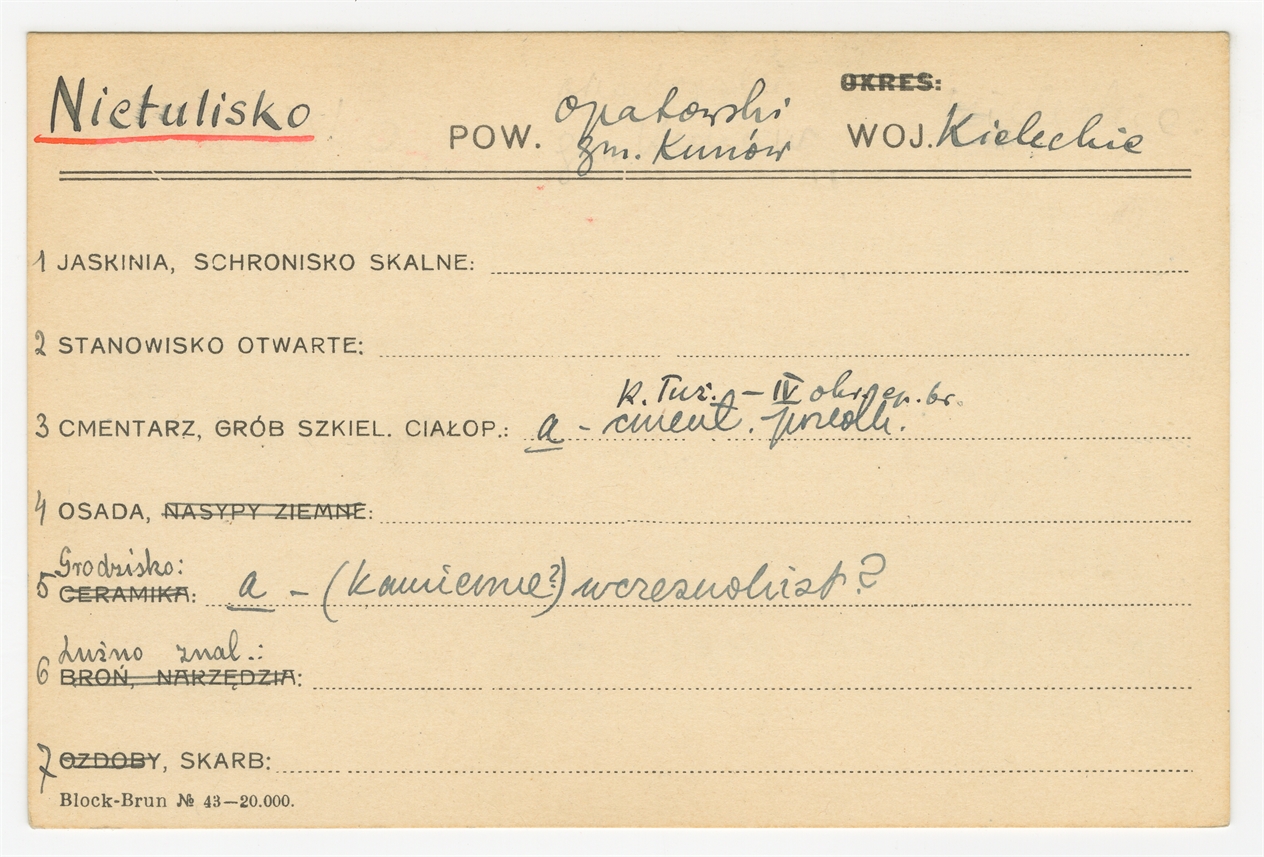 OKRES:
Nietulisko POW. opatowski WOJ. Kieleckie
gm. Kunów
1 JASKINIA, SCHRONISKO SKALNE:
2 STANOWISKO OTWARTE:
k. Łuż. – IV okr. ep. br.
3 CMENTARZ, GRÓB SZKIEL. CIAŁOP.: a - cment.
4 OSADA, NASYPY ZIEMNE:
Grodzisko:
5 CERAMIKA: a – (kamienne?) wczesnohist.?
Luźno znal.:
6 BROŃ, NARZĘDZIA:
7 OZDOBY, SKARB:
Block-Brun № 43—20.000.